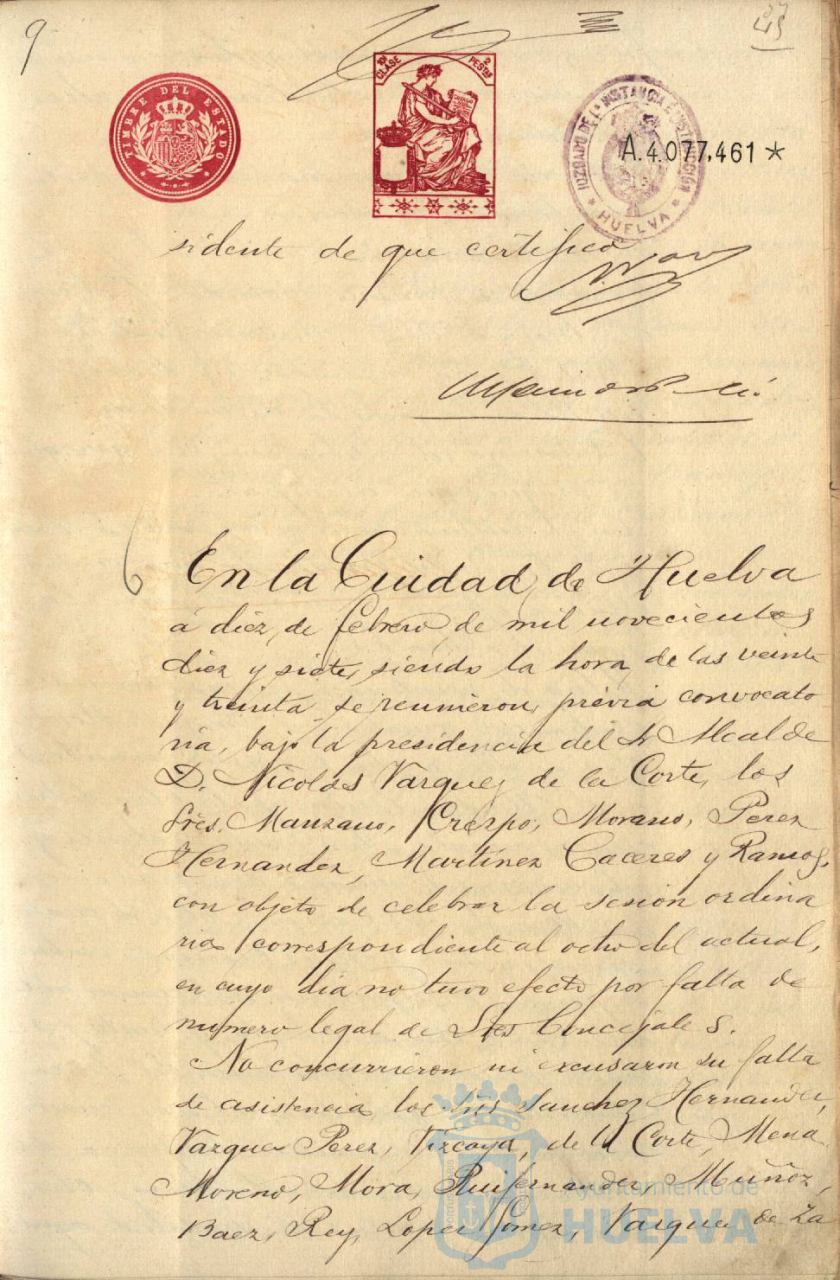 9
45
TIMBRE DEL ESTADO
10ª CLASE
2 PESTAS
JUZGADO DE 1ª INSTANCIA E INSTRUCCIÓN
HUELVA
A.4.077,461 *
sidente de que certifico
6
En la Ciudad de Huelva
á diez de febrero de mil novecientos
diez y siete, siendo la hora de las veinte
y treinta se reunieron, prévia convocato
ria, bajo la presidencia del Sr Alcalde
D. Nicolás Vazquez de la Corte, los
Sres. Manzano, Crespo, Morano, Perez
Hernandez, Martínez Caceres y Ramos,
con objeto de celebrar la sesión ordina
ria correspondiente al ocho del actual,
en cuyo día no tuvo efecto por falta de
numero legal de Sres Concejales.
No concurrieron ni excusaron su falta
de asistencia los Sres Sanchez Hernandez,
Vazquez Perez, Vizcaya, de la Corte, Mena
Moreno, Mora, Ruifernandez, Muñoz,
Baez, Rey, Lopez Gomez, Vazquez de Za
Ayuntamiento de
HUELVA